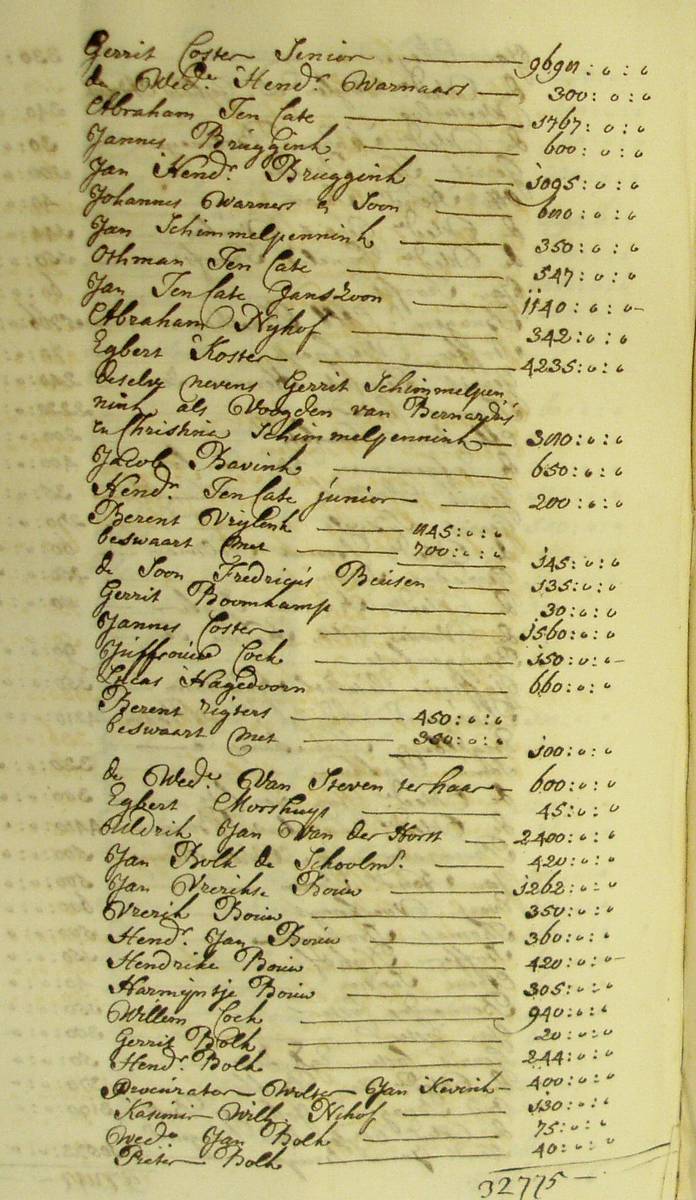 Gerrit Coster Senior — 9690 : 0 : 0
de Wed.e Hend.r Warnaars — 300 : 0 : 0
Abraham Ten Cate — 1767 : 0 : 0
Jannes Bruggink — 600 : 0 : 0
Jan Hend.r Bruggink — 1095 : 0 : 0
Johannes Warners en Soon — 600 : 0 : 0
Jan Schimmelpennink — 350 : 0 : 0
Othman Ten Cate — 547 : 0 : 0
Jan Ten Cate Janszoon — 1140 : 0 : 0
Abraham Nijhof — 342 : 0 : 0
Egbert Koster — 4235 : 0 : 0
deselve nevens Gerrit Schimmelpen
nink als Voogden van Bernardus
en Christina Schimmelpennink — 300 : 0 : 0
Jacob Bavink — 650 : 0 : 0
Hend.r Ten Cate junior — 200 : 0 : 0
Berent Vrijlink — 845 : 0 : 0
beswaart met — 700 : 0 : 0 145 : 0 : 0
de Soon Fredricus Beusen — 135 : 0 : 0
Gerrit Boomkamp — 30 : 0 : 0
Jannes Coster — 1560 : 0 : 0
Juffrouw Cock — 150 : 0 : 0
Lucas Hagedoorn — 660 : 0 : 0
Berent rigters — 450 : 0 : 0
beswaart met — 350 : 0 : 0 100 : 0 : 0
de Wed.e Van Steven ter haar — 600 : 0 : 0
Egbert Morshuys — 45 : 0 : 0
Uldrik Jan Van der Horst — 2400 : 0 : 0
Jan Bolk de Schoolm.r — 420 : 0 : 0
Jan Vrerikse Bouw — 1262 : 0 : 0
Vrerik Bouw — 350 : 0 : 0
Hend.r Jan Bouw — 360 : 0 : 0
Hendrike Bouw — 420 : 0 : 0
Harmijntje Bouw — 305 : 0 : 0
Willem Cock — 940 : 0 : 0
Gerrit Bolk — 20 : 0 : 0
Hend.r Bolk — 244 : 0 : 0
Procurator Wolter Jan Kevink — 400 : 0 : 0
Kasimir Will. Nihof — 130 : 0 : 0
Wed.e Jan Bolk — 75 : 0 : 0
Pieter Bolk — 40 : 0 : 0
32775 —